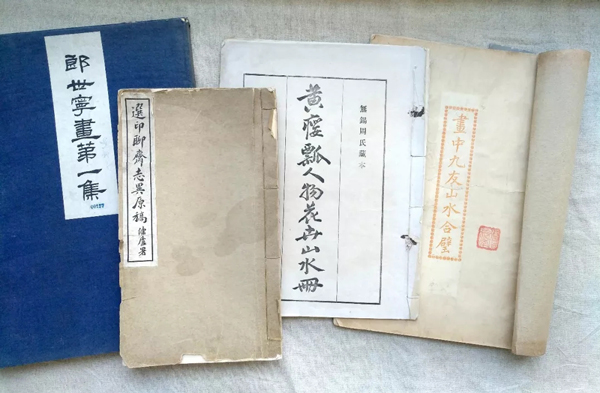 郎世寧畫第一集
選印聊齋志異原稿
無錫周氏藏本
黃癭瓢人物花卉山水冊
畫中九友山水合璧